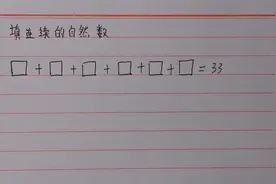 填连续的自然数
□+□+□+□+□+□=33